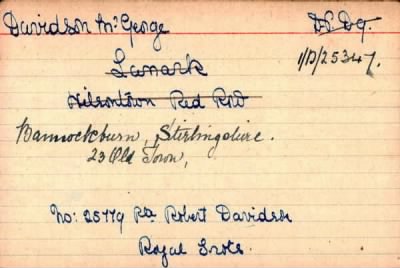 Davidson Mrs George
D.Dg.
1/D/25347.
Lanark
Wilsontown Red Row
Bannockburn, Stirlingshire.
23 Old Town,
No: 25779 Pte Robert Davidson
Royal Scots.